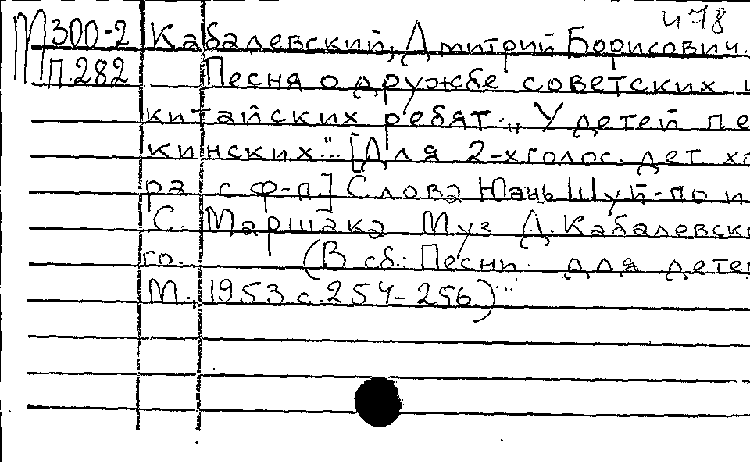 478
М 300-2 Кабалевский, Дмитрий Борисович.
П.282 Песня о дружбе советских и
китайских ребят: „У детей пе
кинских"... [Для 2-хголос. дет. хо
ра с ф-п] Слова Юань Шуй-по и
С. Маршака Муз. Д. Кабалевско
го. (В сб.: Песни для детей
М., 1953 с. 254-256)